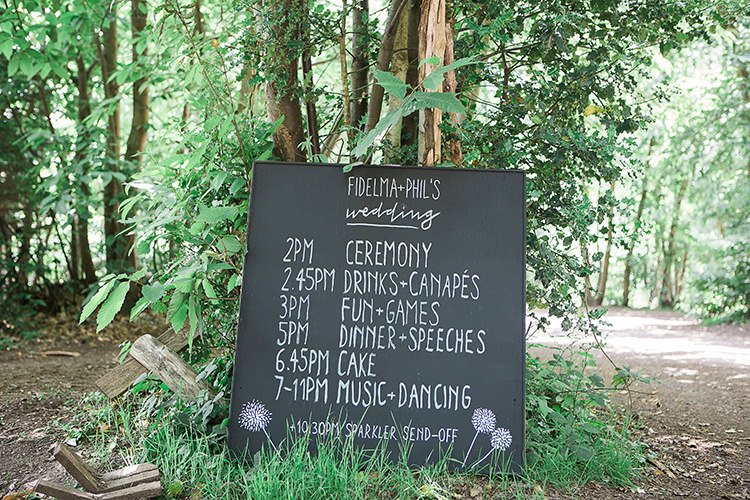 FIDELMA+PHIL'S
wedding
2PM CEREMONY
2.45PM DRINKS+CANAPÉS
3PM FUN+GAMES
5PM DINNER+SPEECHES
6.45PM CAKE
7-11PM MUSIC+DANCING
+10.30PM SPARKLER SEND-OFF